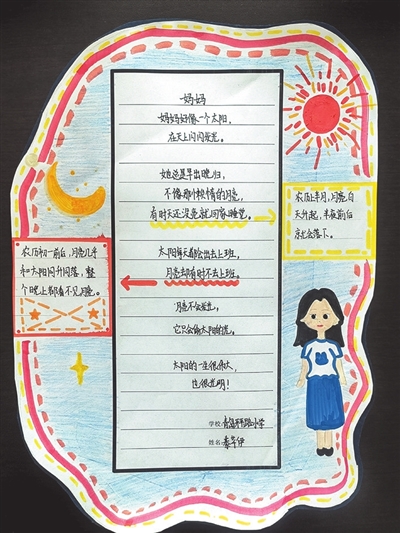 妈妈
妈妈好像一个太阳，
在天上闪闪发光。
她总是早出晚归，
不像那懒惰的月亮，
有时天还没亮就回家睡觉。
太阳每天都会出去上班，
月亮却有时不去上班。
月亮不会发光，
它只会偷太阳的光。
太阳的一生很伟大，
也很光明！
学校：青岛小学
姓名：
农历初一前后，月亮几乎
和太阳同升同落，整
个晚上都看不见月亮。
农历上半月，月亮白
天升起，半夜前后
就会落下。